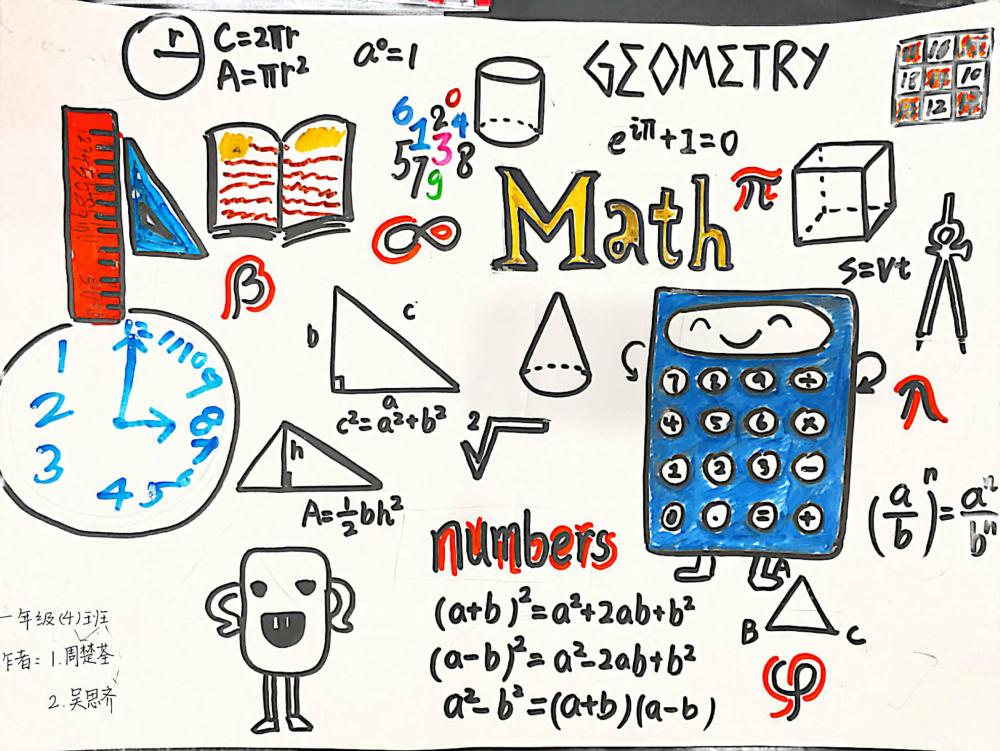 r
C=2πr
A=πr²
a⁰=1
GEOMETRY
18 10
12
6 2 0
1 4
5 3 8
7 9
e^{iπ}+1=0
Math
π
∞
β
S=Vt
b c
a
c²=a²+b²
12 11 10 9
1
2 8
3 7
4 5 6
h
A=½bh²
²√
7 8 9 ÷
4 5 6 ×
1 2 3 -
0 . = +
π
(a/b)ⁿ=aⁿ/bⁿ
numbers
(a+b)²=a²+2ab+b²
(a-b)²=a²-2ab+b²
a²-b²=(a+b)(a-b)
A
B C
φ
一年级(4)班
作者：1.周楚荃
2.吴思齐